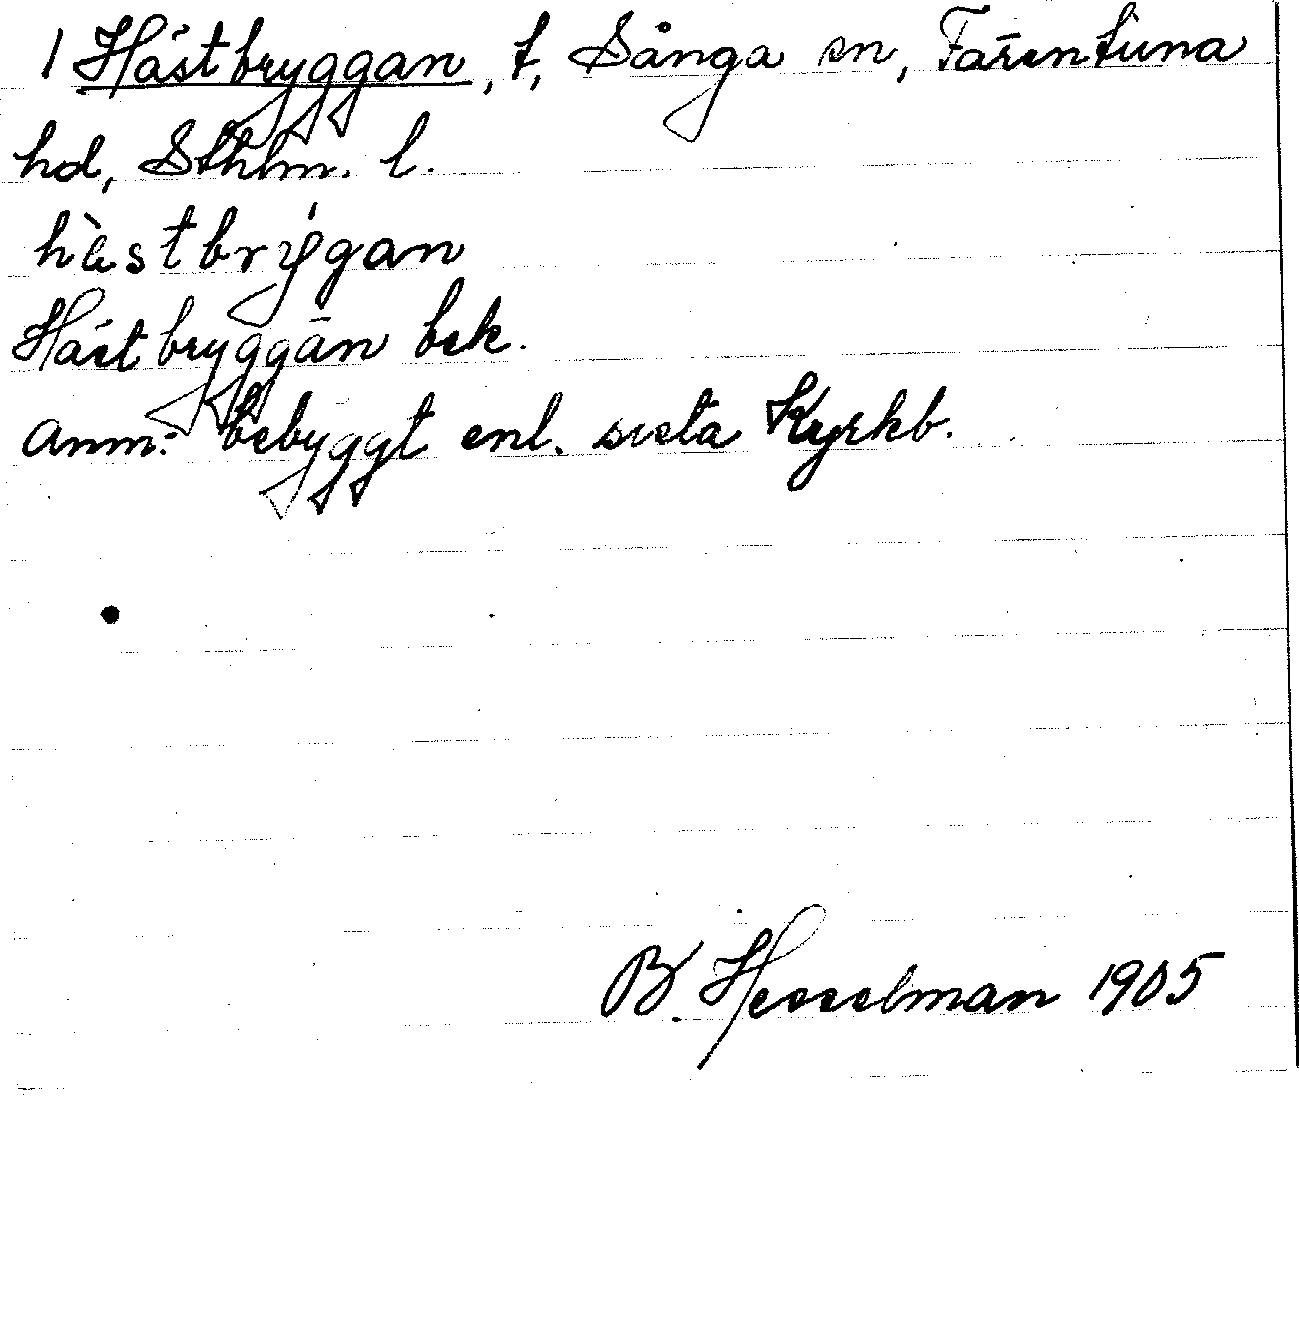 1 Hästbryggan, t, Sånga sn, Färentuna
hd, Sthlm. l.
hä̀stbrýgan
Hästbryggan bek.
anm: bebyggt enl. sista Kyrkb.
B. Hesselman 1905